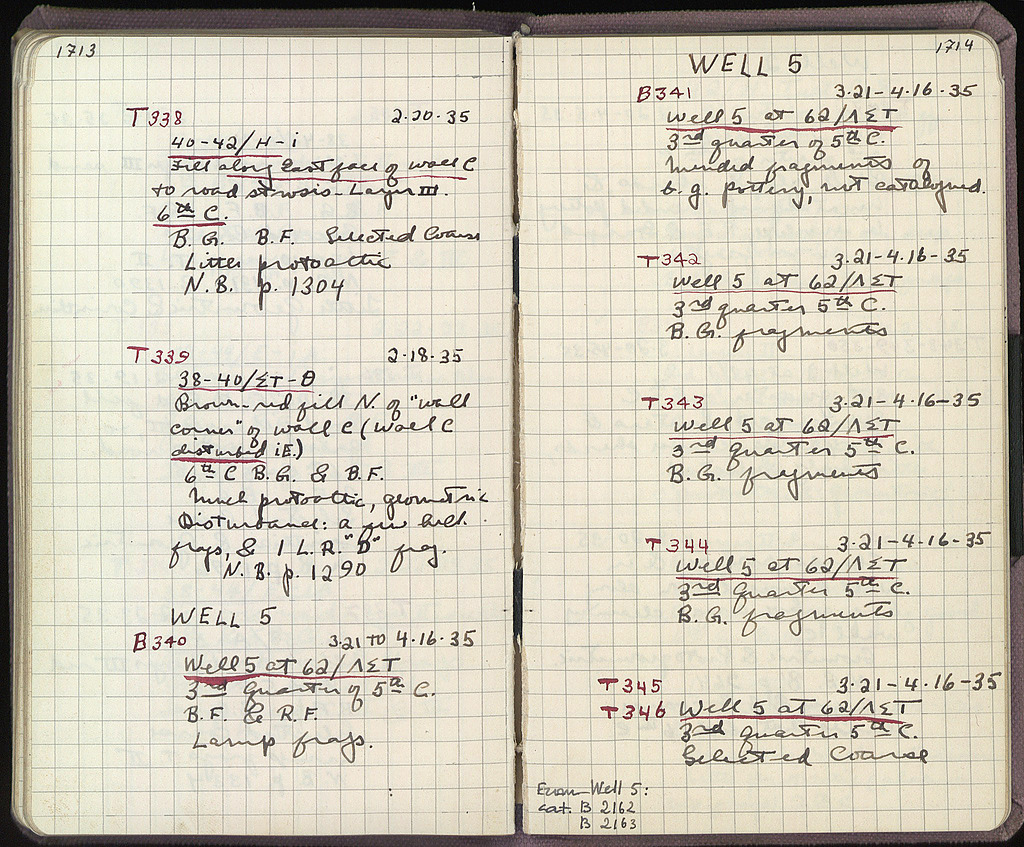 1713
T338 2·20·35
40-42/H-i
Fill along East face of wall C
to road strosis - Layer III.
6th C.
B.G. B.F. Selected Coarse
Little protoattic
N.B. p. 1304
T339 2·18·35
38-40/ΣT-Θ
Brown-red fill N. of "wall
corner" of wall C (wall C
disturbed iE.)
6th C B.G. & B.F.
Much protoattic, geometric
Disturbance: a few hell.
frags, & 1 L.R. "D" frag.
N.B. p. 1290
WELL 5
B340 3·21 TO 4·16·35
Well 5 at 62/ΛΣT
3rd Quarter of 5th C.
B.F. & R.F.
Lamp frags.
1714
WELL 5
B341 3·21-4·16-35
Well 5 at 62/ΛΣT
3rd quarter of 5th C.
Mended fragments of
b.g. pottery, not catalogued.
T342 3·21-4·16-35
Well 5 at 62/ΛΣT
3rd quarter 5th C.
B.G. fragments
T343 3·21-4·16-35
Well 5 at 62/ΛΣT
3rd quarter 5th C.
B.G. fragments
T344 3·21-4·16-35
Well 5 at 62/ΛΣT
3rd Quarter 5th C.
B.G. fragments
T345 3·21-4·16-35
T346 Well 5 at 62/ΛΣT
3rd quarter 5th C.
Selected Coarse
From Well 5:
cat. B 2162
B 2163